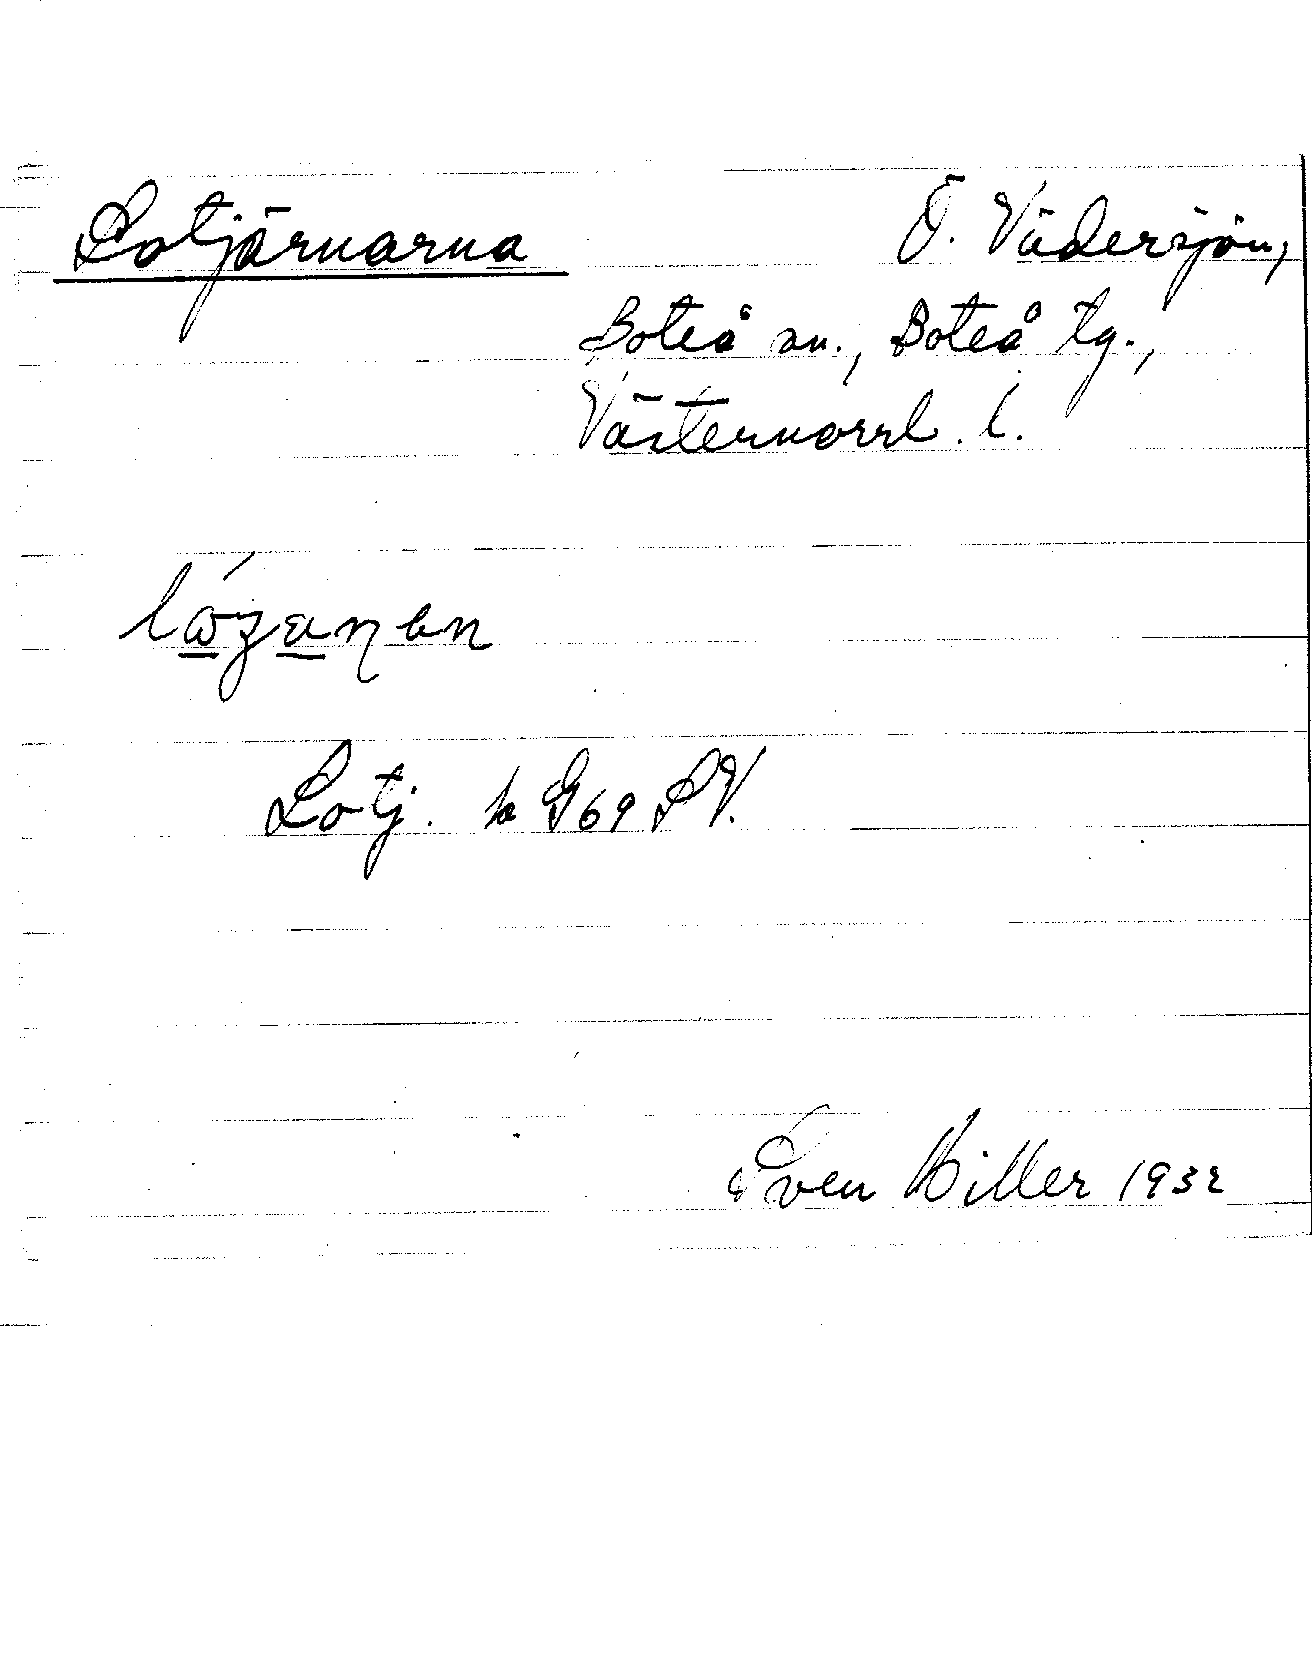 Lotjärnarna Ö. Vädersjön,
Boteå sn., Boteå tg.,
Västernorrl. l.
Lotj. k G69 SV.
Sven Hiller 1932